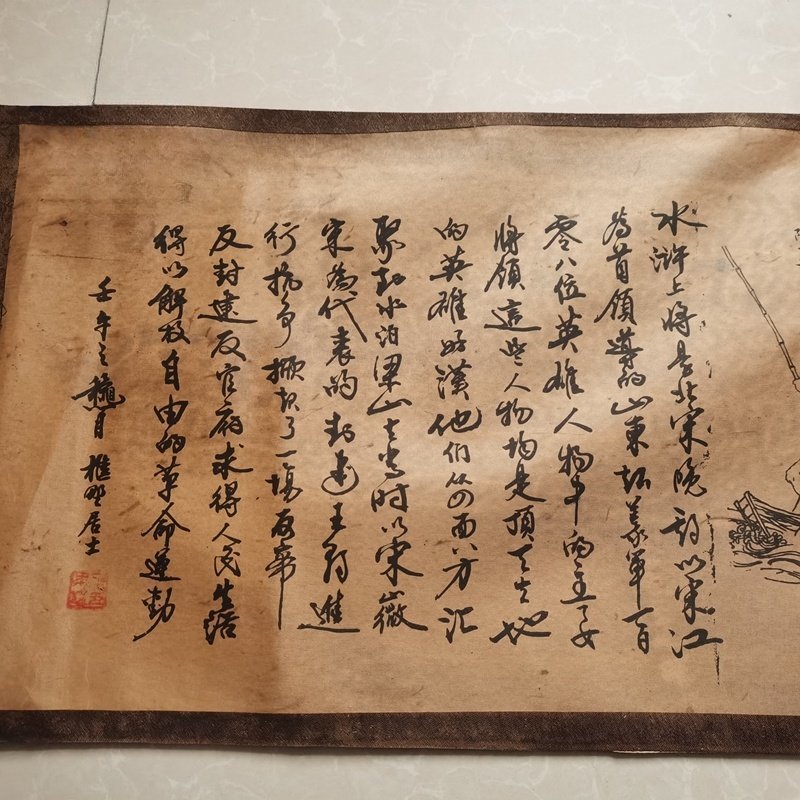 水浒上将是北宋晚期以宋江
为首领导的山东起义军一百
零八位英雄人物中的主要
将领这些人物均是顶天立地
的英雄好汉他们从四面八方汇
聚到水泊梁山上当时以宋徽
宋为代表的封建王朝进
行抗争掀起了一场反帝
反封建反官府求得人民生活
得以解放自由的革命运动
壬午之秋月 樵野居士